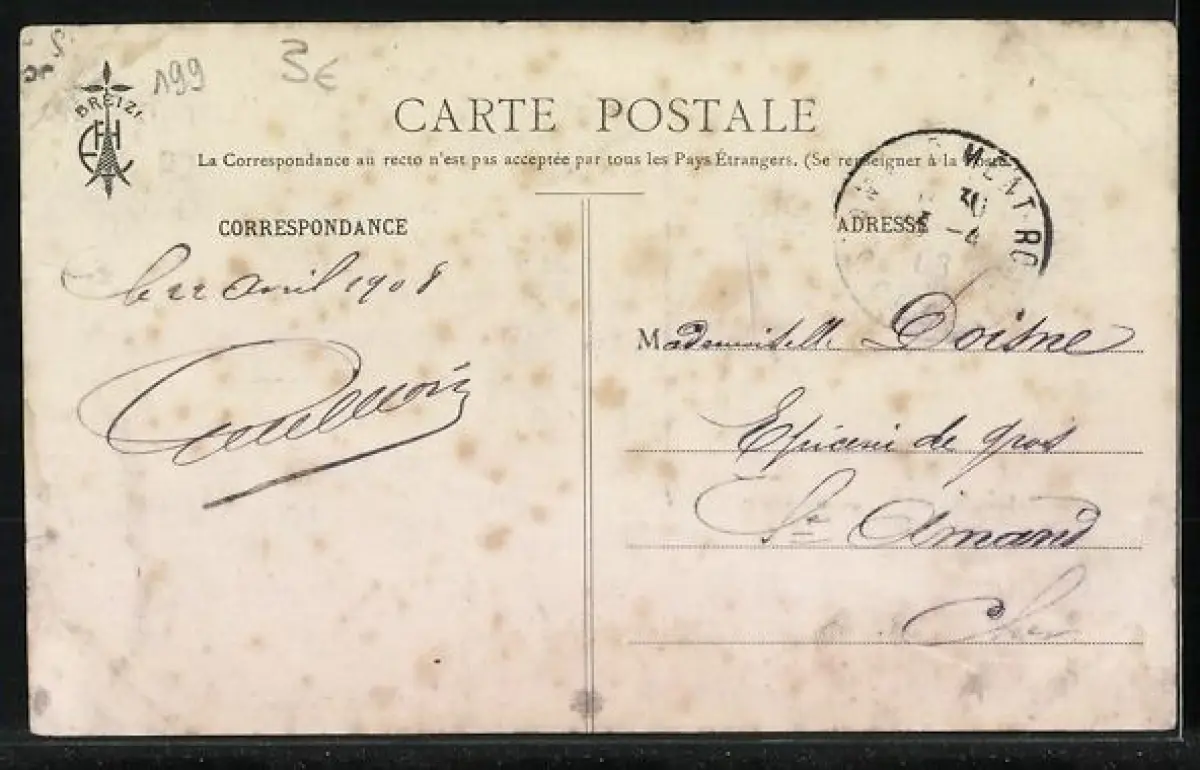 199
3€
BREIZ
CARTE POSTALE
La Correspondance au recto n'est pas acceptée par tous les Pays Étrangers. (Se renseigner à la Poste
CORRESPONDANCE
ADRESSE
le 22 Avril 1908
Mademoiselle Doisne
Epicerie de gros
St Amand
Cher